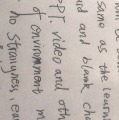 same as the learn
and blank ch
PPT, video and oth
of environment m
no strangness, en